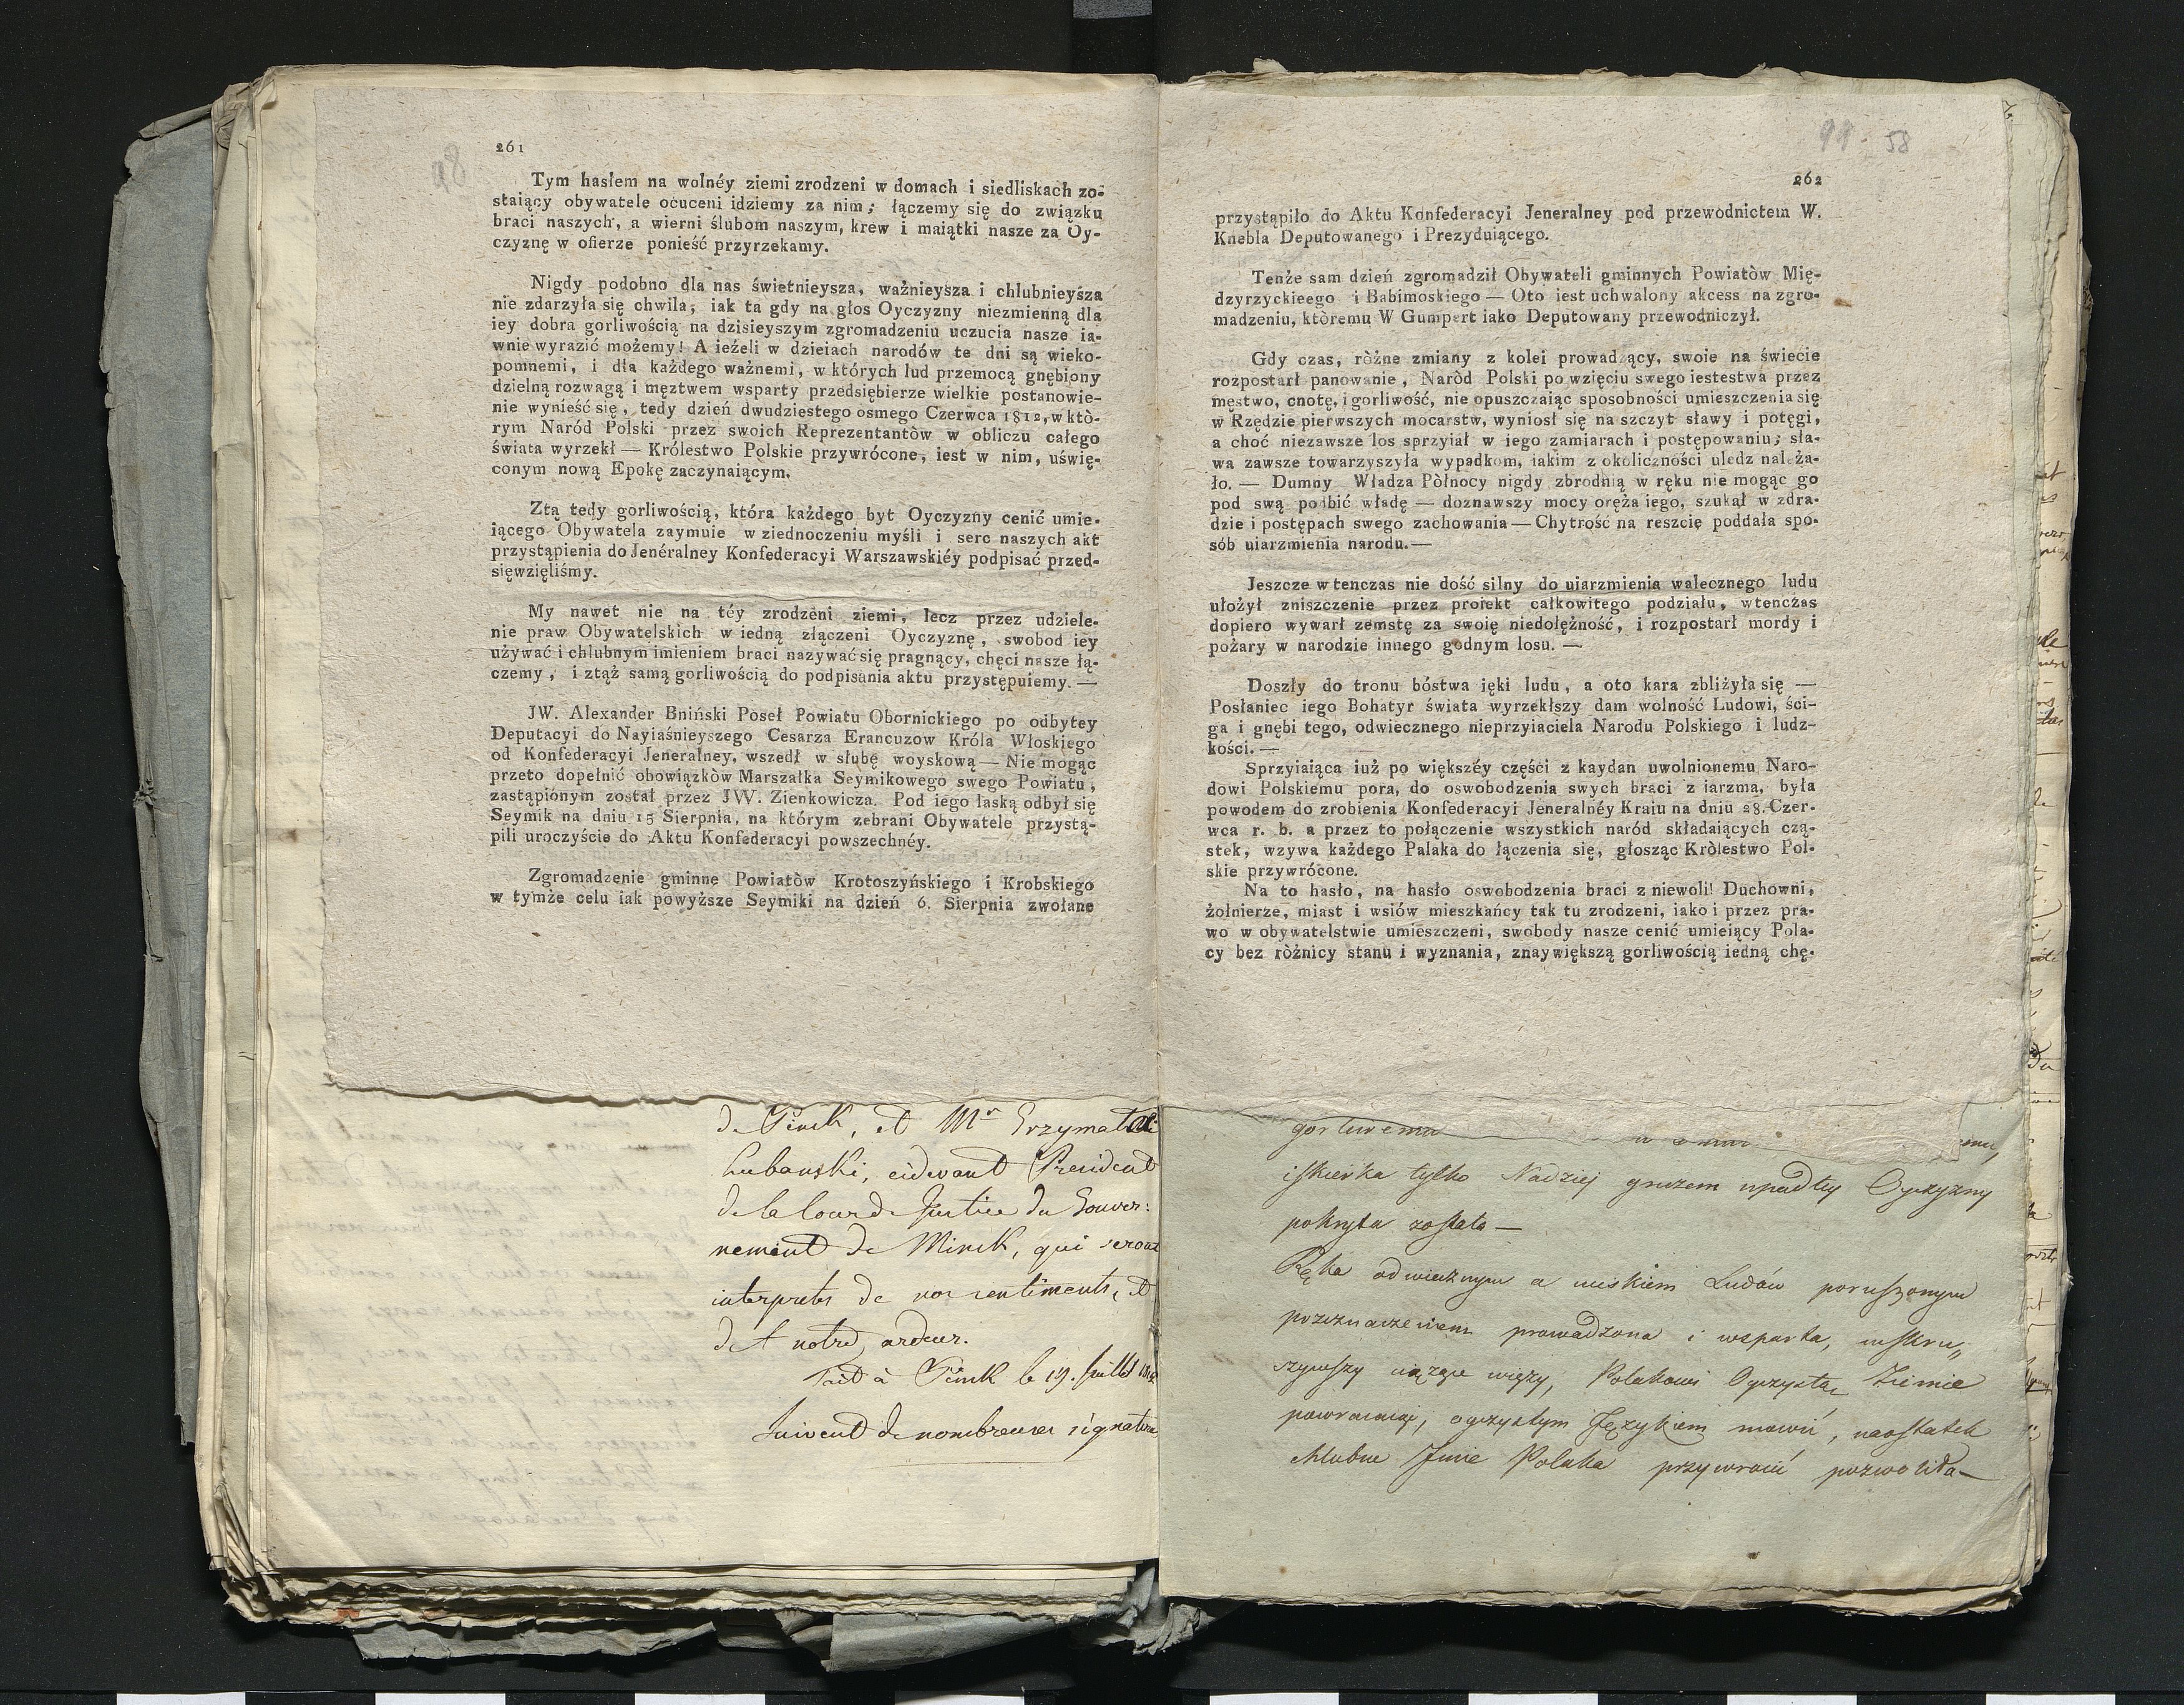 98
261
Tym hasłem na wolnéy ziemi zrodzeni w domach i siedliskach zo-
staiący obywatele ocuceni idziemy za nim; łączemy się do związku
braci naszych, a wierni ślubom naszym, krew i maiątki nasze za Oy-
czyznę w ofierze ponieść przyrzekamy.
Nigdy podobno dla nas świetnieysza, ważnieysza i chlubnieysza
nie zdarzyła się chwila, iak ta gdy na głos Oyczyzny niezmienną dla
iey dobra gorliwością na dzisieyszym zgromadzeniu uczucia nasze ia-
wnie wyrazić możemy! A ieżeli w dzieiach narodów te dni są wieko-
pomnemi, i dla każdego ważnemi, w których lud przemocą gnębiony
dzielną rozwagą i męztwem wsparty przedsiębierze wielkie postanowie-
nie wynieść się, tedy dzień dwudziestego osmego Czerwca 1812, w któ-
rym Naród Polski przez swoich Reprezentantòw w obliczu całego
świata wyrzekł — Królestwo Polskie przywrócone, iest w nim, uświę-
conym nową Epokę zaczynaiącym.
Ztą tedy gorliwością, która każdego byt Oyczyzny cenić umie-
iącego Obywatela zaymuie w ziednoczeniu myśli i serc naszych akt
przystąpienia do Jenéralney Konfederacyi Warszawskiéy podpisać przed-
sięwzięliśmy.
My nawet nie na téy zrodzèni ziemi, lecz przez udziele-
nie praw Obywatelskich w iedną złączeni Oyczyznę, swobod iey
używać i chlubnym imieniem braci nazywać się pragnący, chęci nasze łą-
czemy, i ztąż samą gorliwością do podpisania aktu przystępuiemy. —
JW. Alexander Bniński Poseł Powiatu Obornickiego po odbytey
Deputacyi do Nayiaśnieyszego Cesarza Erancuzow Króla Włoskiego
od Konfederacyi Jeneralney, wszedł w słubę woyskową — Nie mogąc
przeto dopełnić obowiązkòw Marszałka Seymikowego swego Powiatu,
zastąpionym został przez JW. Zienkowicza. Pod iego laską odbył się
Seymik na dniu 15 Sierpnia, na którym zebrani Obywatele przystą-
pili uroczyście do Aktu Konfederacyi powszechnéy.
Zgromadzenie gminne Powiatòw Krotoszyńskiego i Krobskiego
w tymże celu iak powyższe Seymiki na dzień 6. Sierpnia zwołane
de Pinsk, et Mr Grzymała
Lubanski, cidevant President
de la Cour de Justice du Gouver:
nement de Minsk, qui seront
interpretes de nos sentiments, et
de notre ardeur.
Fait à Pinsk le 19. Juillet 1812
Suivent de nombreuses signatures
58
262
przystąpiło do Aktu Konfederacyi Jeneralney pod przewodnictem W.
Knebla Deputowanego i Prezyduiącego.
Tenże sam dzień zgromadził Obywateli gminnych Powiatòw Mię-
dzyrzyckieego i Babimoskiego — Oto iest uchwalony akcess na zgro-
madzeniu, któremu W Gumpert iako Deputowany przewodniczył.
Gdy czas, różne zmiany z kolei prowadzący, swoie na świecie
rozpostarł panowanie, Naròd Polski po wzięciu swego iestestwa przez
męstwo, cnotę, i gorliwość, nie opuszczaiąc sposobności umieszczenia się
w Rzędzie pierwszych mocarstw, wyniosł się na szczyt sławy i potęgi,
a choć niezawsze los sprzyiał w iego zamiarach i postępowaniu; sła-
wa zawsze towarzyszyła wypadkom, iakim z okoliczności uledz należa-
ło. — Dumny Władza Pòłnocy nigdy zbrodnią w ręku nie mogąc go
pod swą podbić władę — doznawszy mocy oręża iego, szukał w zdra-
dzie i postępach swego zachowania — Chytrość na reszcie poddała spo-
sób uiarzmienia narodu.—
Jeszcze w tenczas nie dość silny do uiarzmienia walecznego ludu
ułożył zniszczenie przez proiekt całkowitego podziału, wtenczas
dopiero wywarł zemstę za swoię niedołężność, i rozpostarł mordy i
pożary w narodzie innego godnym losu. —
Doszły do tronu bóstwa ięki ludu, a oto kara zbliżyła się —
Posłaniec iego Bohatyr świata wyrzekłszy dam wolność Ludowi, ści-
ga i gnębi tego, odwiecznego nieprzyiaciela Narodu Polskiego i ludz-
kości. —
Sprzyiaiąca iuż po większéy części z kaydan uwolnionemu Naro-
dowi Polskiemu pora, do oswobodzenia swych braci z iarzma, była
powodem do zrobienia Konfederacyi Jeneralnéy Kraiu na dniu 28. Czer-
wca r. b. a przez to połączenie wszystkich naród składaiących czą-
stek, wzywa każdego Palaka do łączenia się, głosząc Królestwo Pol-
skie przywrócone.
Na to hasło, na hasło oswobodzenia braci z niewoli! Duchowni,
żołnierze, miast i wsiów mieszkańcy tak tu zrodzeni, iako i przez pra-
wo w obywatelstwie umieszczeni, swobody nasze cenić umieiący Pola-
cy bez różnicy stanu i wyznania, znaywiększą gorliwością iedną chę-
iskierka tylko Nadziej gruzem upadłey Oyczyzny
pokryta została —
Ręka odwiecznym a uciskiem Ludów poruszonym
przeznaczeniem prowadzona i wsparta, wskru„
szywszy więzy, Polakowi Oyczystą Ziemie
powracaiąc, oyczystym Językiem mówić, naostatek
chlubne Jmie Polaka przywrócić pozwoliła —